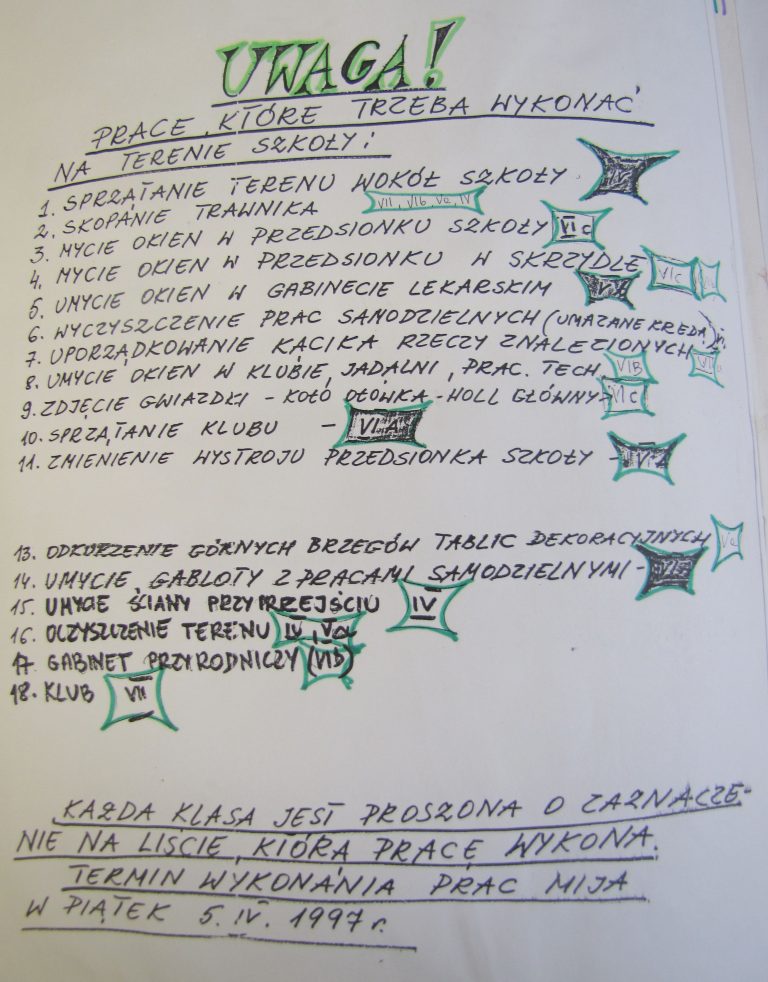 UWAGA!
PRACE, KTÓRE TRZEBA WYKONAĆ
NA TERENIE SZKOŁY:
1. SPRZĄTANIE TERENU WOKÓŁ SZKOŁY. IV
2. SKOPANIE TRAWNIKA VII, VIb, Va, IV
3. MYCIE OKIEN W PRZEDSIONKU SZKOŁY VI c
4. MYCIE OKIEN W PRZEDSIONKU W SKRZYDLE VIc
5. UMYCIE OKIEN W GABINECIE LEKARSKIM
6. WYCZYSZCZENIE PRAC SAMODZIELNYCH (UMAZANE KREDĄ)
7. UPORZĄDKOWANIE KĄCIKA RZECZY ZNALEZIONYCH
8. UMYCIE OKIEN W KLUBIE, JADALNI, PRAC. TECH. VIB
9. ZDJĘCIE GWIAZDKI - KOŁO OŁÓWKA - HOLL GŁÓWNY VI c
10. SPRZĄTANIE KLUBU - VI A
11. ZMIENIENIE WYSTROJU PRZEDSIONKA SZKOŁY -
13. ODKURZENIE GÓRNYCH BRZEGÓW TABLIC DEKORACYJNYCH Va
14. UMYCIE GABLOTY Z PRACAMI SAMODZIELNYMI -
15. UMYCIE ŚCIANY PRZY PRZEJŚCIU IV
16. OCZYSZCZENIE TERENU IV, Va
17 GABINET PRZYRODNICZY (VIb)
18. KLUB VII
KAŻDA KLASA JEST PROSZONA O ZAZNACZE-
NIE NA LIŚCIE, KTÓRĄ PRACĘ WYKONA.
TERMIN WYKONANIA PRAC MIJA
W PIĄTEK 5. IV. 1997 r.